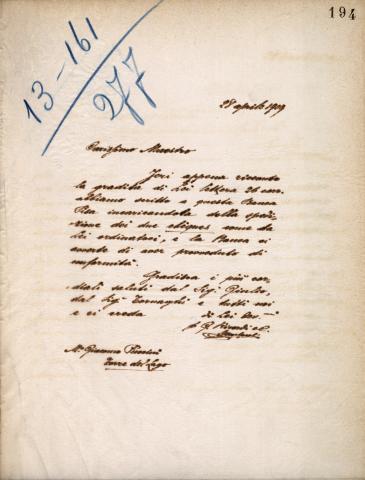 194
13-161
277
28 aprile 1909
Carissimo Maestro
Jeri appena ricevuta
la gradita di Lei lettera 26 corr.
abbiamo scritto a questa Banca
incaricandola della spedi-
zione dei due chèques come da
Lei ordinatoci, e la Banca ci
avverte di aver provveduto di
conformità.
Gradisca i più cor-
diali saluti dal Sig. Giulio,
dal Sigr Tornaghi e tutti noi
e ci creda
di Lei
p. G. Ricordi e C.
Mo Giacomo Puccini
Torre del Lago